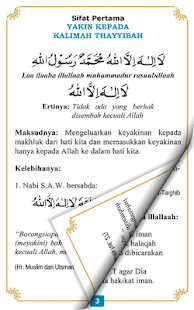 Sifat Pertama
YAKIN KEPADA
KALIMAH THAYYIBAH
لَا إِلٰهَ إِلَّا اللهُ مُحَمَّدٌ رَسُوْلُ اللهِ
Laa ilaaha illallaah muhammadur rasuulullaah
لَا إِلٰهَ إِلَّا اللهُ
Ertinya: Tidak ada yang berhak
disembah kecuali Allah
Maksudnya: Mengeluarkan keyakinan kepada
makhluk dari hati kita dan memasukkan keyakinan
hanya kepada Allah ke dalam hati kita.
Kelebihannya:
1. Nabi S.A.W. bersabda:
-Targhib
"Barangsiapa
(meyakini) bah
kecuali Allah, m
(Hr. Muslim dari Utsman
illallaah:
halaqah
dibicarakan
T agar Dia
hakikat iman.
3